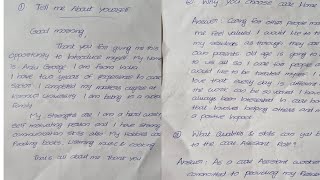 ① Tell me About yourself
Good morning,
Thank you for giving me this
opportunity to introduce myself. My Name
is Anju George. I am from Kerala
I have two years of experience in care
Sector. I completed my masters degree at
University. I am being in a
family
My strengths are, I am a hard worker,
Self motivating person and I have strong
Communication skills also. My hobbies are
Reading books, Listening music & cooking.
That's all about me. Thank you
② Why you choose care Home
Answer: Caring for other people makes
me feel valued. I would like to
my as though they are
own parents. Old age is going to
us all so I care like people
would like to be treated myself. I
that every day is different
the work can be so varied. I have
always been interested in care
that involves helping others and
a positive impact
③ What Qualities & skills can you bring
to the care Assistant Role?
Answer: As a care Assistant
committed to providing my